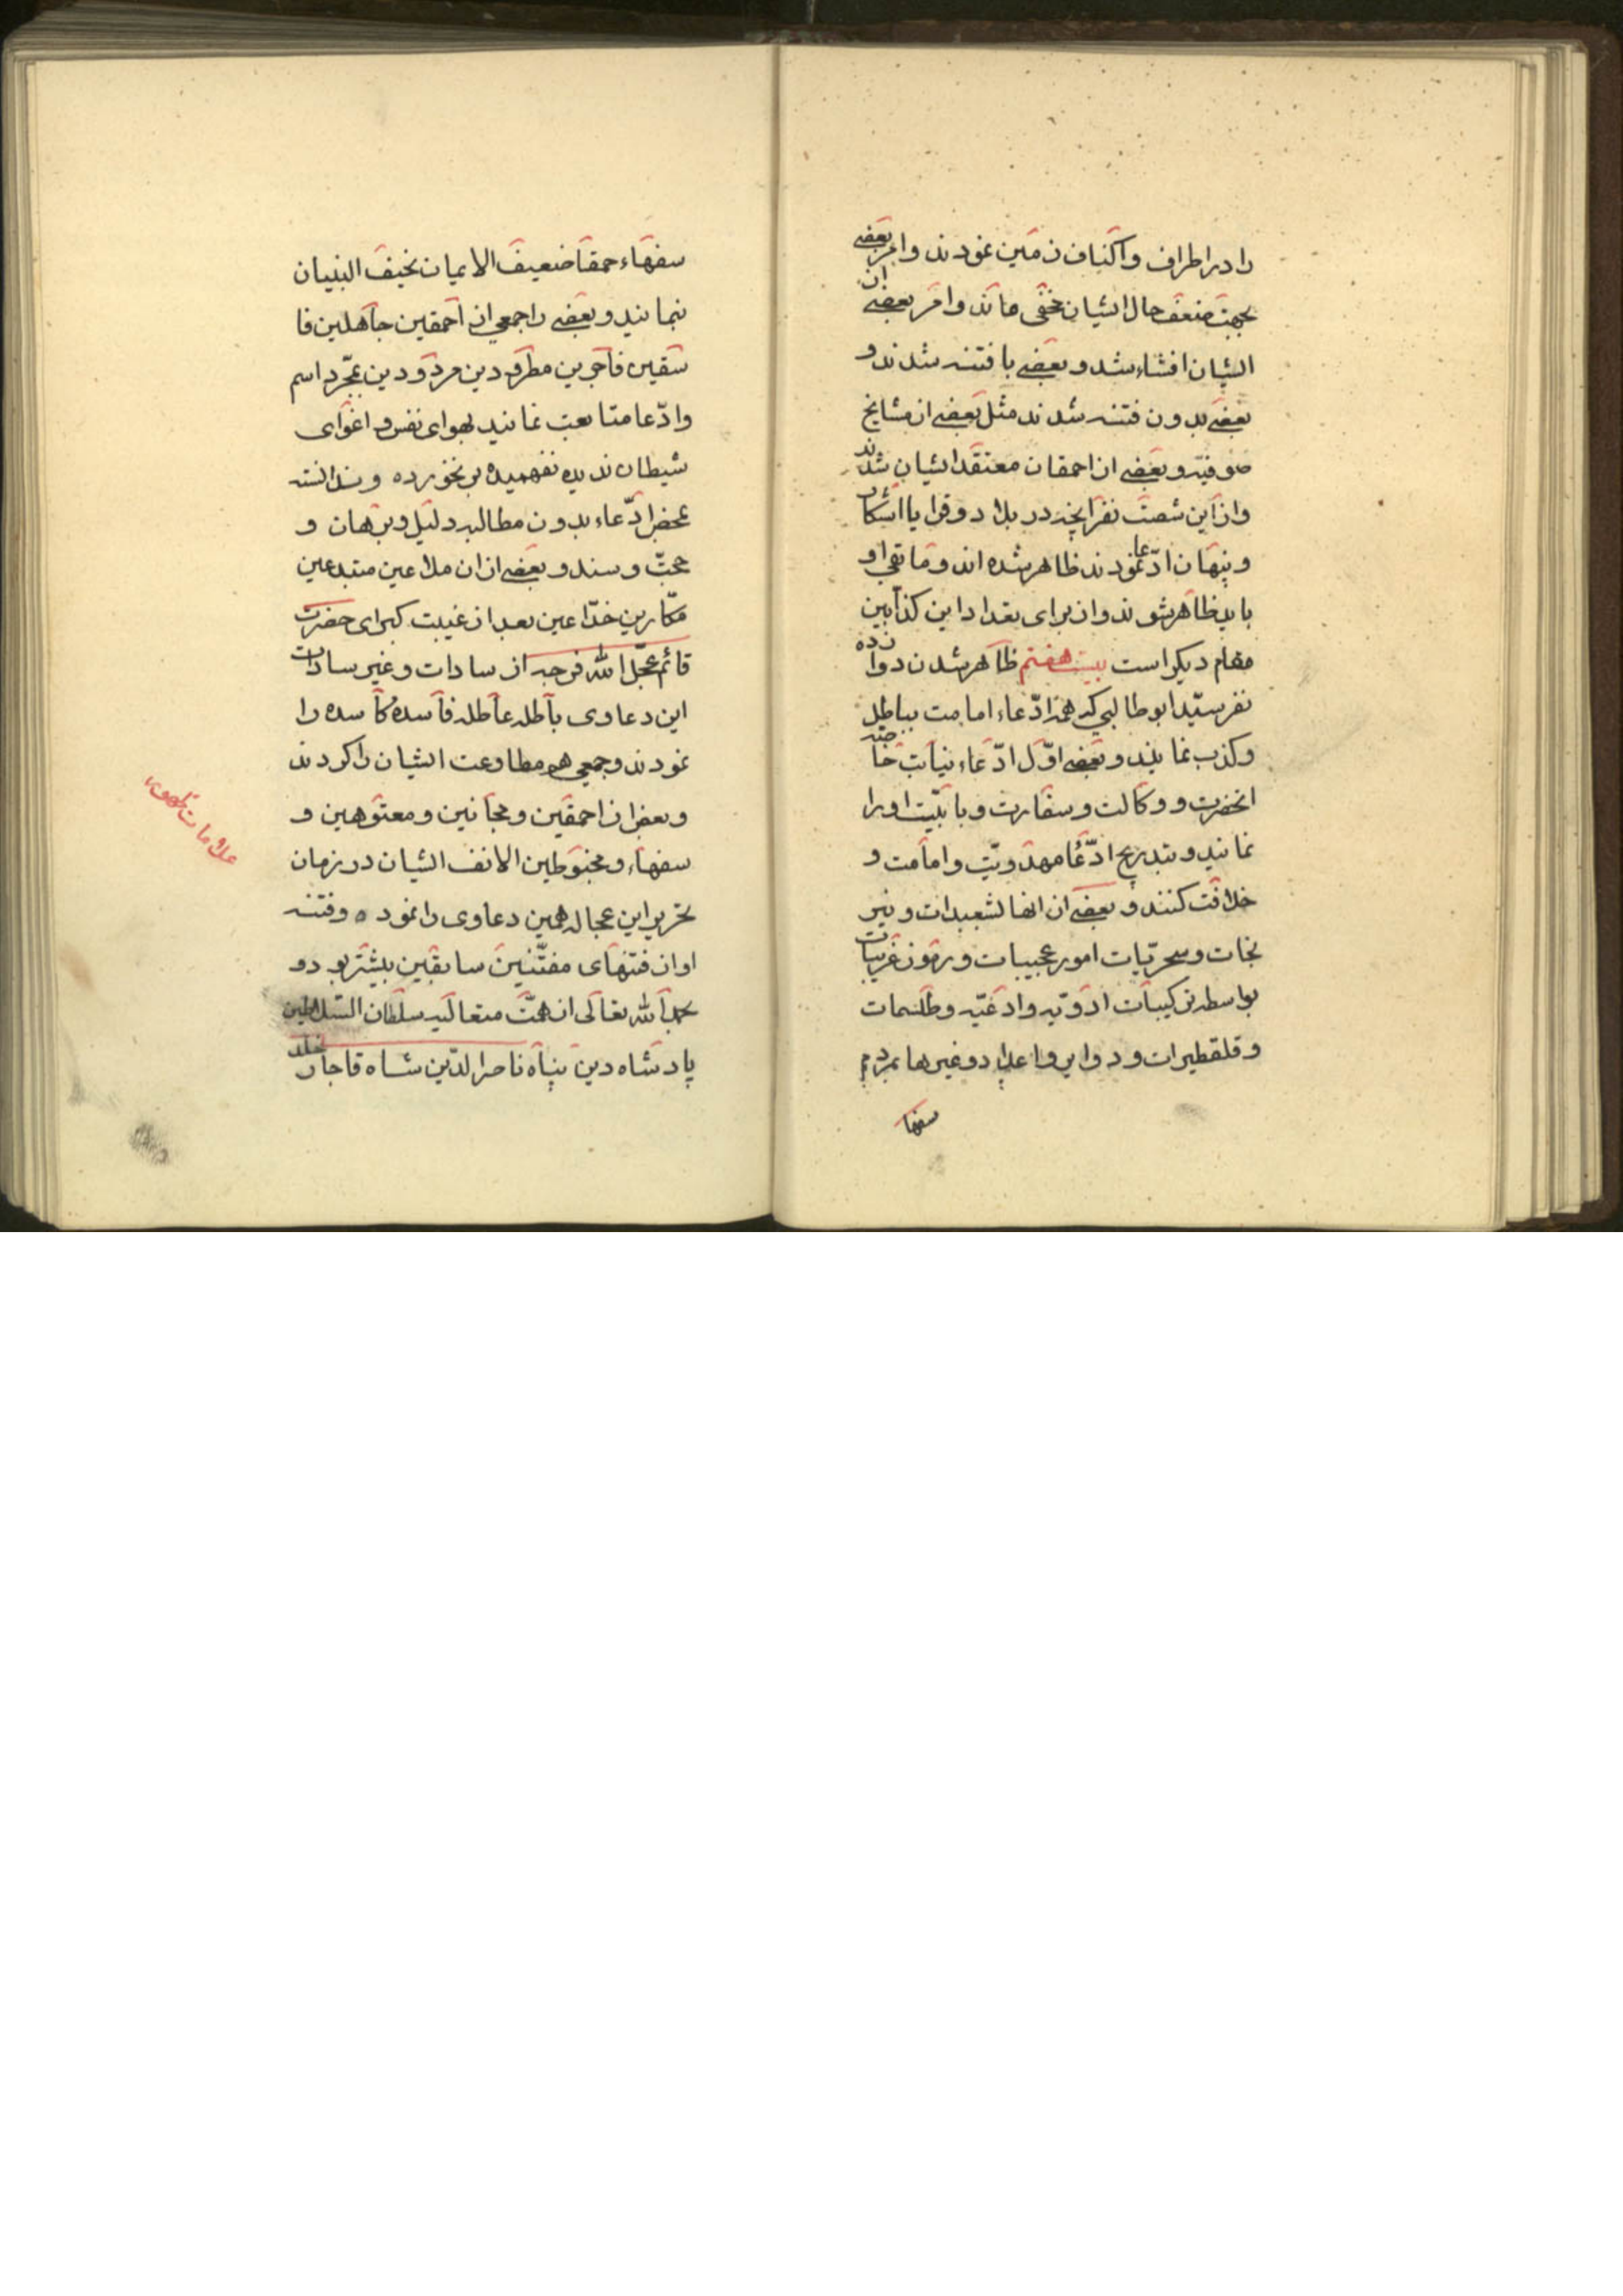 را در اطراف و اکناف زمین نمودند و امر بعضی
بجهت ضعف حال ایشان مخفی ماند و امر بعضی از
ایشان افشاء شد و بعضی با فتنه شدند و
بعضی بدون فتنه شدند مثل بعضی از مشایخ
صوفیه و بعضی از احمقان معتقد ایشان شدند
و از این شصت نفر آنچه در بلاد و قرایا آشکار
و پنهان ادّعا نمودند ظاهر شده‌اند و مابقی او
باید ظاهر شوند و از برای تعداد این کذّابین
مقام دیکر است بیست هفتم ظاهر شدن دوازده
نفر سیّد ابو طالبی که همه ادّعاء امامت بباطل
و کذب نمایند و بعضی اوّل ادّعاء نیابت خاصّه
انحضرت و وکالت و سفارت و بابیّت او را
نمایند و بتدریج ادّعا مهدویّت و امامت و
خلافت کنند و بعضی از انها بشعبدات و نیر
نجات و سحریّات امور عجیبات و رموز غریبات
بواسطه ترکیبات ادویه و ادعیّه و طلسمات
و قلقطیرات و دوایر و اعداد و غیرها بمردم
سفها
سفهاء حمقا ضعیف الایمان نحیف البنیان
بنمایند و بعضی را جمعی از احمقین جاهلین فا
سقین فاجرین مطرودین مردودین بمجّرد اسم
و ادّعا متابعت نمایند بهوای نفس و اغوای
شیطان ندیده نفهمیده بر نخورده و ندانسته
بمحض ادّعاء بدون مطالبه دلیل و برهان و
حجّت و سند و بعضی از ان ملاعین مبتدعین
مکّارین خدّاعین بعد از غیبت کبرای حضرت
قائم عجّل الله فرجه از سادات و غیر سادات
این دعاوی باطله عاطله فاسده کاسده را
نمودند و جمعی هم مطاوعت ایشان را کردند
و بعض از احمقین و مجانین و معتوهین و
سفهاء و مخبوطین الانف ایشان در زمان
تحریر این عجاله همین دعاوی را نموده و فتنه
او از فتنهای مفتّنین سابقین بیشتر بود و
بحمد الله تعالی از همّت متعالیه سلطان السّلاطین
پادشاه دین پناه ناصر الدّین شاه قاجار خلد
علامات ظهور